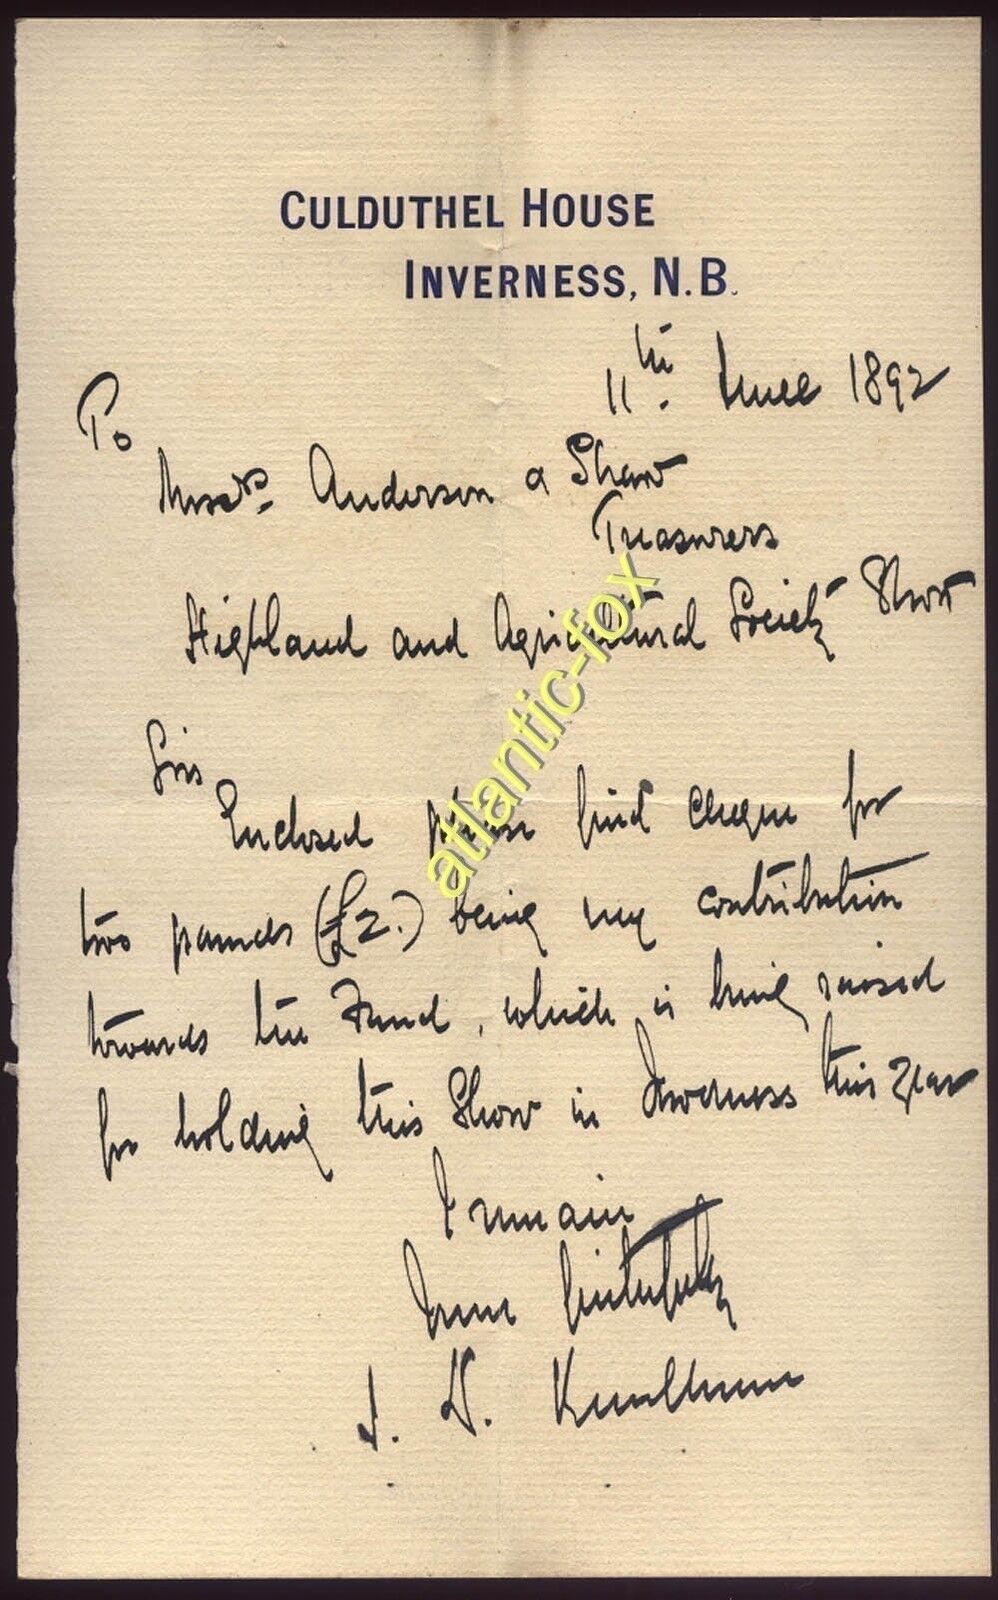 CULDUTHEL HOUSE
INVERNESS, N.B.
11th. June 1892
To
Messrs. Anderson & Shaw
Treasurers
Highland and Agricultural Society Show
Sirs
Enclosed please find cheque for
two pounds (£2.) being my contribution
towards the Fund, which is being raised
for holding this Show in Inverness this year
I remain
Yours faithfully
atlantic-fox